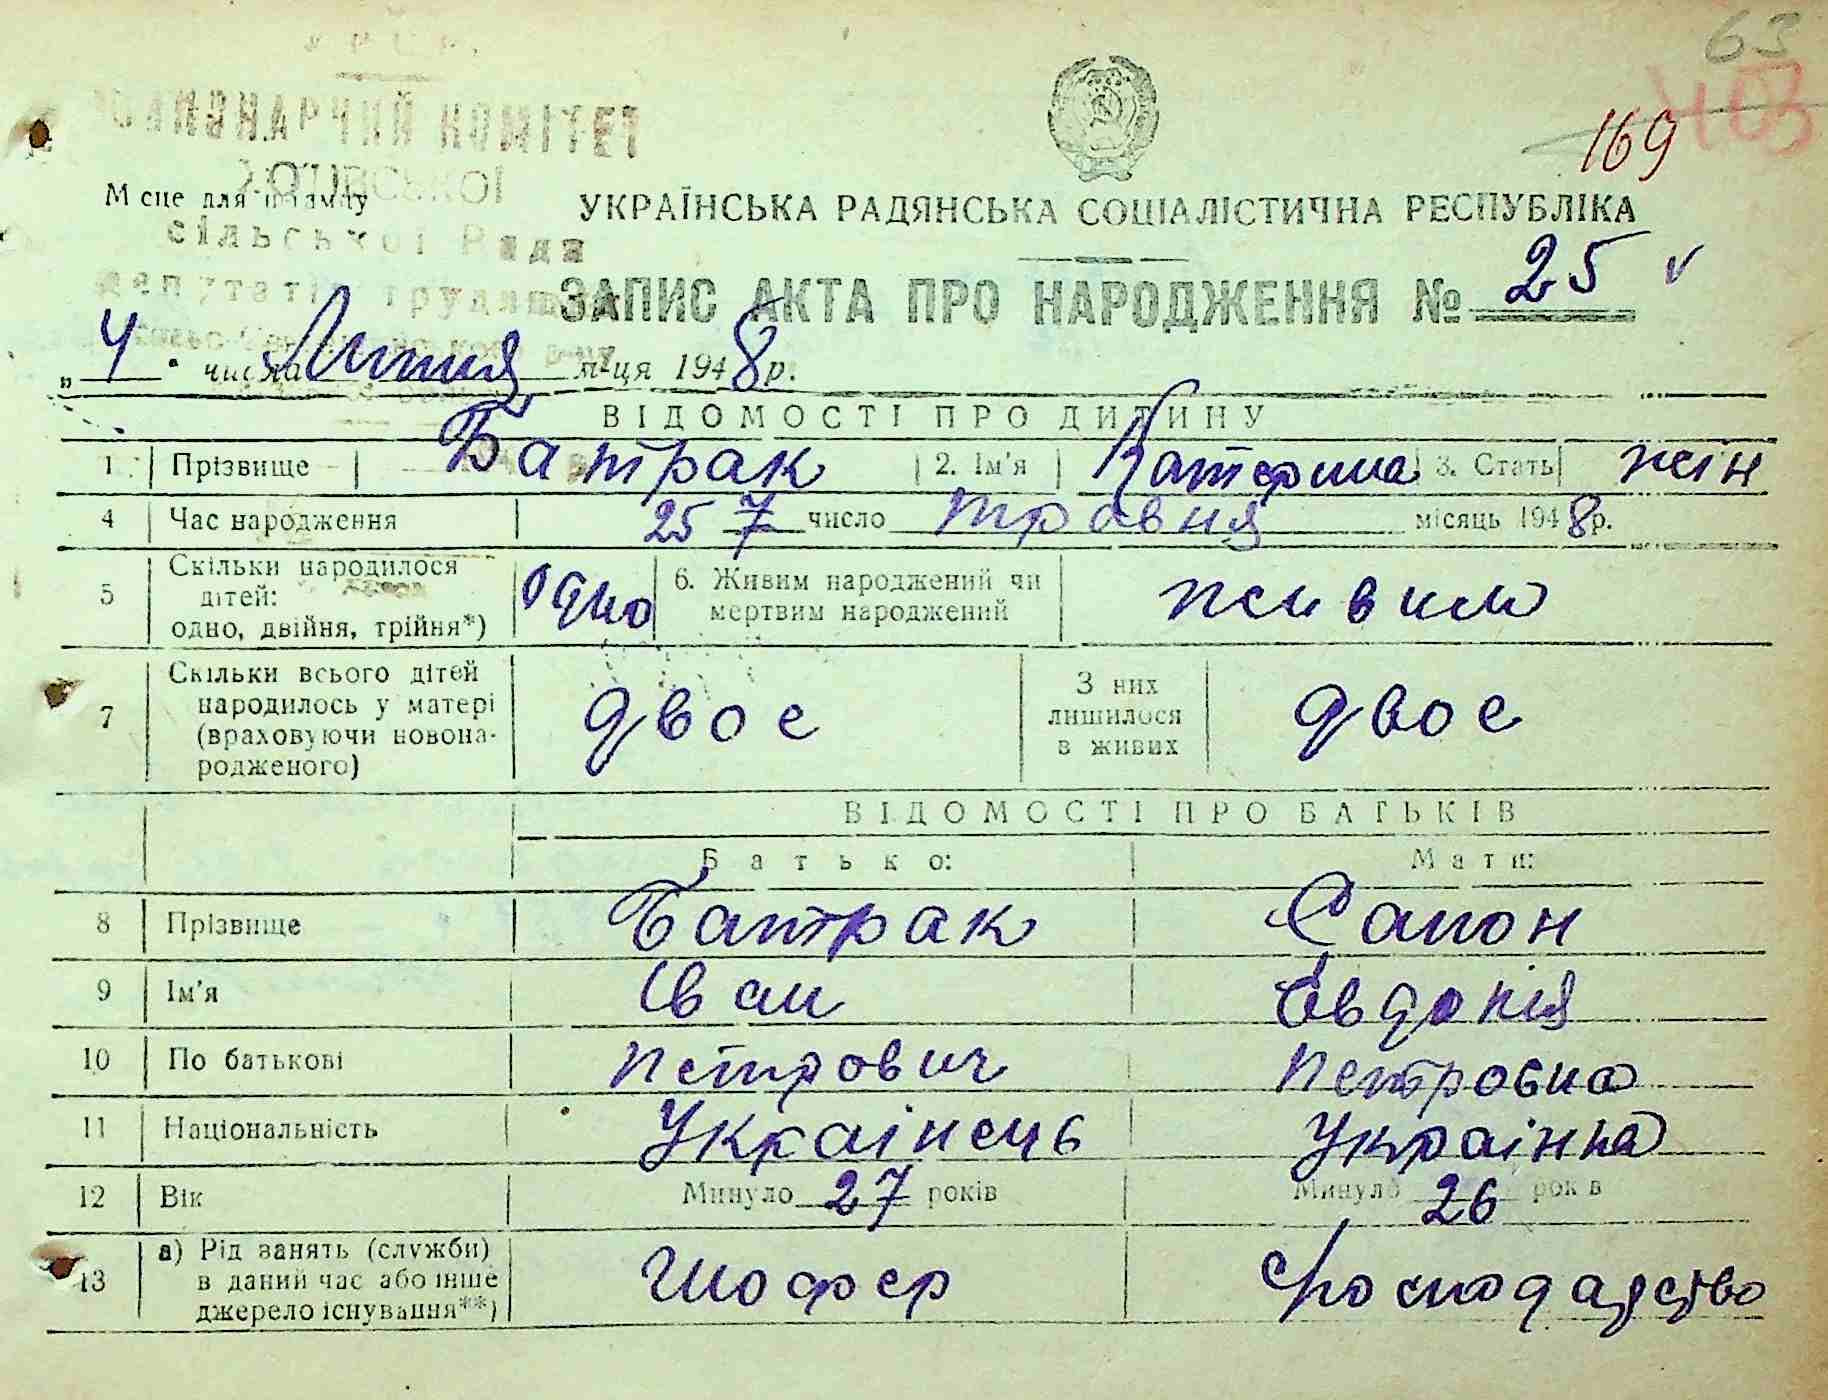 63
403
169
ВИКОНАВЧИЙ КОМІТЕТ
Місце для штампу
сільської Ради
депутатів трудящих
УКРАЇНСЬКА РАДЯНСЬКА СОЦІАЛІСТИЧНА РЕСПУБЛІКА
ЗАПИС АКТА ПРО НАРОДЖЕННЯ № 25 v
„4" числа Липня м-ця 1948 р.
ВІДОМОСТІ ПРО ДИТИНУ
1 Прізвище Батрак 2. Ім'я Катерина 3. Стать жін
4 Час народження 25 7 число травня місяць 1948 р.
5 Скільки народилося дітей: одно, двійня, трійня*) одно 6. Живим народжений чи мертвим народжений живим
7 Скільки всього дітей народилось у матері (враховуючи новонародженого) двоє З них лишилося в живих двоє
ВІДОМОСТІ ПРО БАТЬКІВ
Батько: Мати:
8 Прізвище Батрак Сапон
9 Ім'я Іван Євдокія
10 По батькові Петрович Петровна
11 Національність Українець Українка
12 Вік Минуло 27 років Минуло 26 років
13 а) Рід занять (служби) в даний час або інше джерело існування**) Шофер